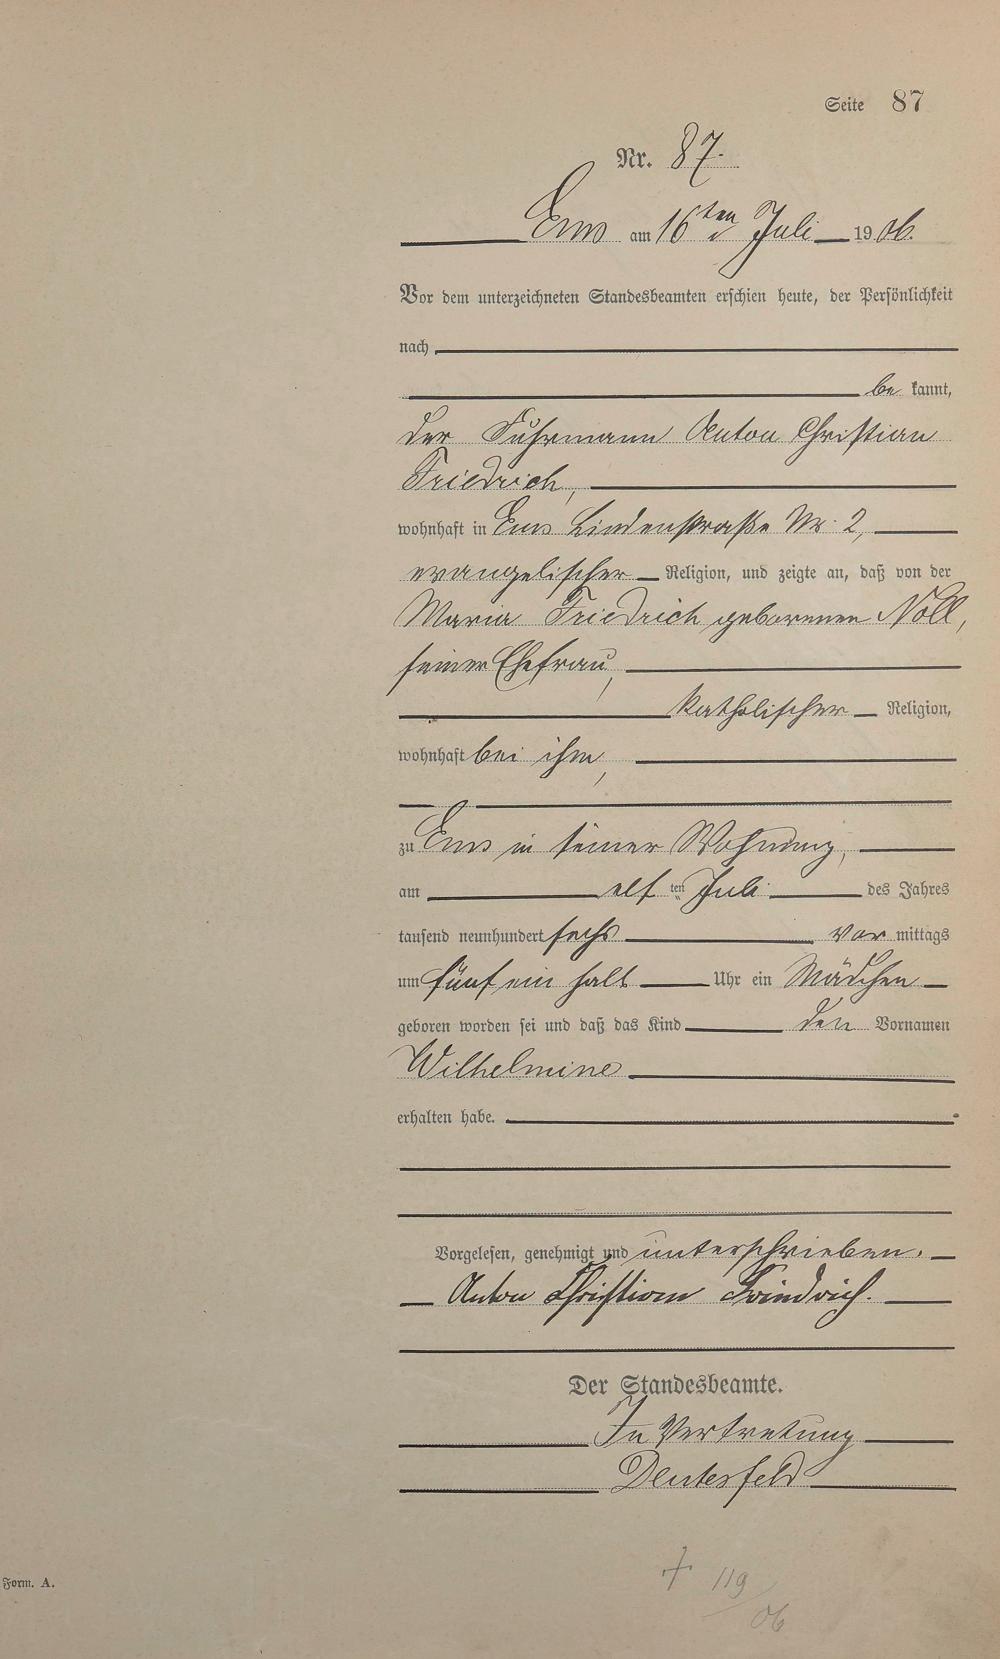 Seite 87
Nr. 87.
Ems am 16ten Juli 1906.
Vor dem unterzeichneten Standesbeamten erschien heute, der Persönlichkeit
nach
be kannt,
der Fuhrmann Anton Christian
Friedrich,
wohnhaft in Ems Lindenstraße Nr. 2,
evangelischer Religion, und zeigte an, daß von der
Maria Friedrich geborenen Noll,
seiner Ehefrau,
katholischer Religion,
wohnhaft bei ihm,
zu Ems in seiner Wohnung,
am elf ten Juli des Jahres
tausend neunhundert sechs vor mittags
um fünf ein halb Uhr ein Mädchen
geboren worden sei und daß das Kind den Vornamen
Wilhelmine
erhalten habe.
Vorgelesen, genehmigt und unterschrieben.
Anton Christian Friedrich.
Der Standesbeamte.
In Vertretung
Form. A.
† 119
06